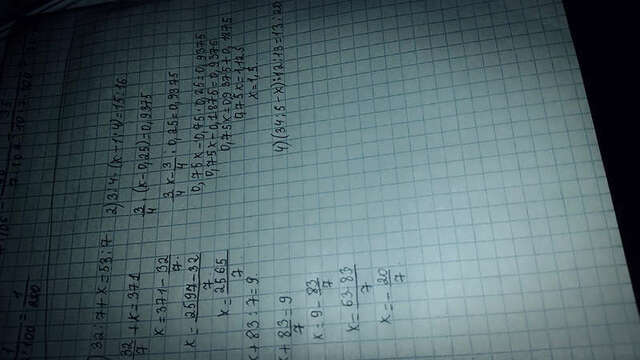 32:7+x=53:7
32/7+x=371
x=371-32/7
x-2597-32/7
x=2565/7
x+83:7=9
x+83/7=9
x=9-83/7
x=63-83/7
x=-20/7
2)3:4·(x+1:4)=15:16
3/4·(x-0,25)=0,9375
3/4x-3/4·0,25=0,9375
0,75x-0,75·0,25=0,9375
0,75x-0,1875=0,9375
0,75x=0,9375+0,1875
0,75x=1,125
x=1,5
4)(34,5-x):12:13=13:20